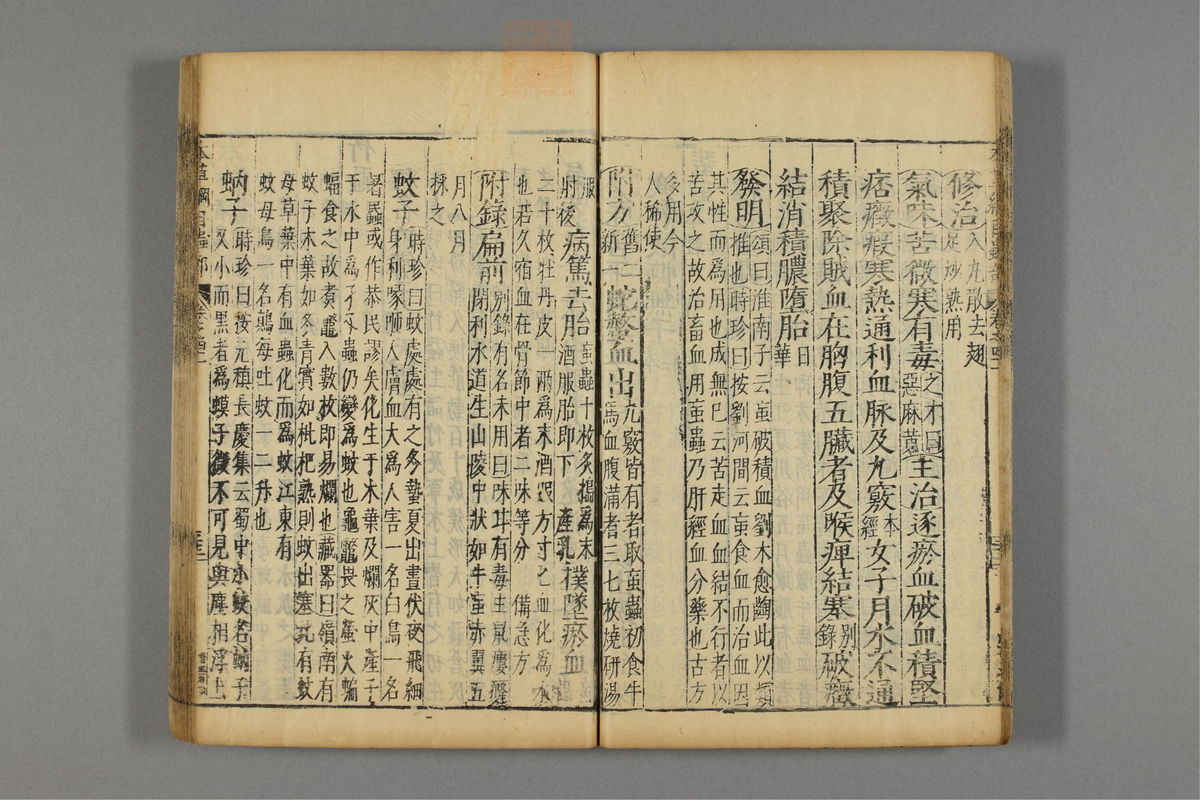 修治入丸散去翅足炒熟用
氣味苦微寒有毒之才曰惡麻黃主治逐瘀血破血積堅
痞癥瘕寒熱通利血脉及九竅本經女子月水不通
積聚除賊血在胸腹五臟者及喉痺結塞别錄破癥
結消積膿墮胎日華
發明頌曰淮南子云䖟破積血劉木愈齲此以類
推也時珍曰按劉河間云䖟食血而治血因
其性而爲用也成無已云苦走血血結不行者以
苦攻之故治畜血用䖟蟲乃肝經血分藥也古方
多用今
人稀使
附方舊二新一蛇螫血出九竅皆有者取䖟蟲初食牛
馬血腹滿者三七枚燒研湯
服
肘後病篤去胎䖟蟲十枚炙搗爲末酒服胎即下產乳撲墜瘀血
二十枚牡丹皮一兩爲末酒服方寸匕血化爲水
也若久宿血在骨節中者二味等分備急方
附錄扁前别錄有名未用曰味甘有毒主鼠瘻癃
閉利水道生山陵中狀如牛䖟赤翼五
月八月
採之
蚊子時珍曰蚊處處有之冬蟄夏出晝伏夜飛細
身利喙咂人膚血大爲人害一名白鳥一名
暑䘇或作恭民謬矣化生于木葉及爛灰中產子
于水中爲孑孓蟲仍變爲蚊也龜鼈畏之螢火蝙
蝠食之故煮鼈入數枚即易爛也藏器曰嶺南有
蚊子木葉如冬青實如枇杷熟則蚊出塞北有蚊
母草葉中有血蟲化而爲蚊江東有
蚊母鳥一名鷏每吐蚊一二升也
蚋子時珍曰按元稹長慶集云蜀中小蚊名蚋子
又小而黑者爲蟆子微不可見與塵相浮上